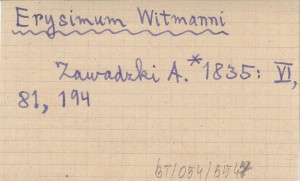 Erysimum Witmanni
Zawadzki A.* 1835: VI,
81, 194
BT/054/5547